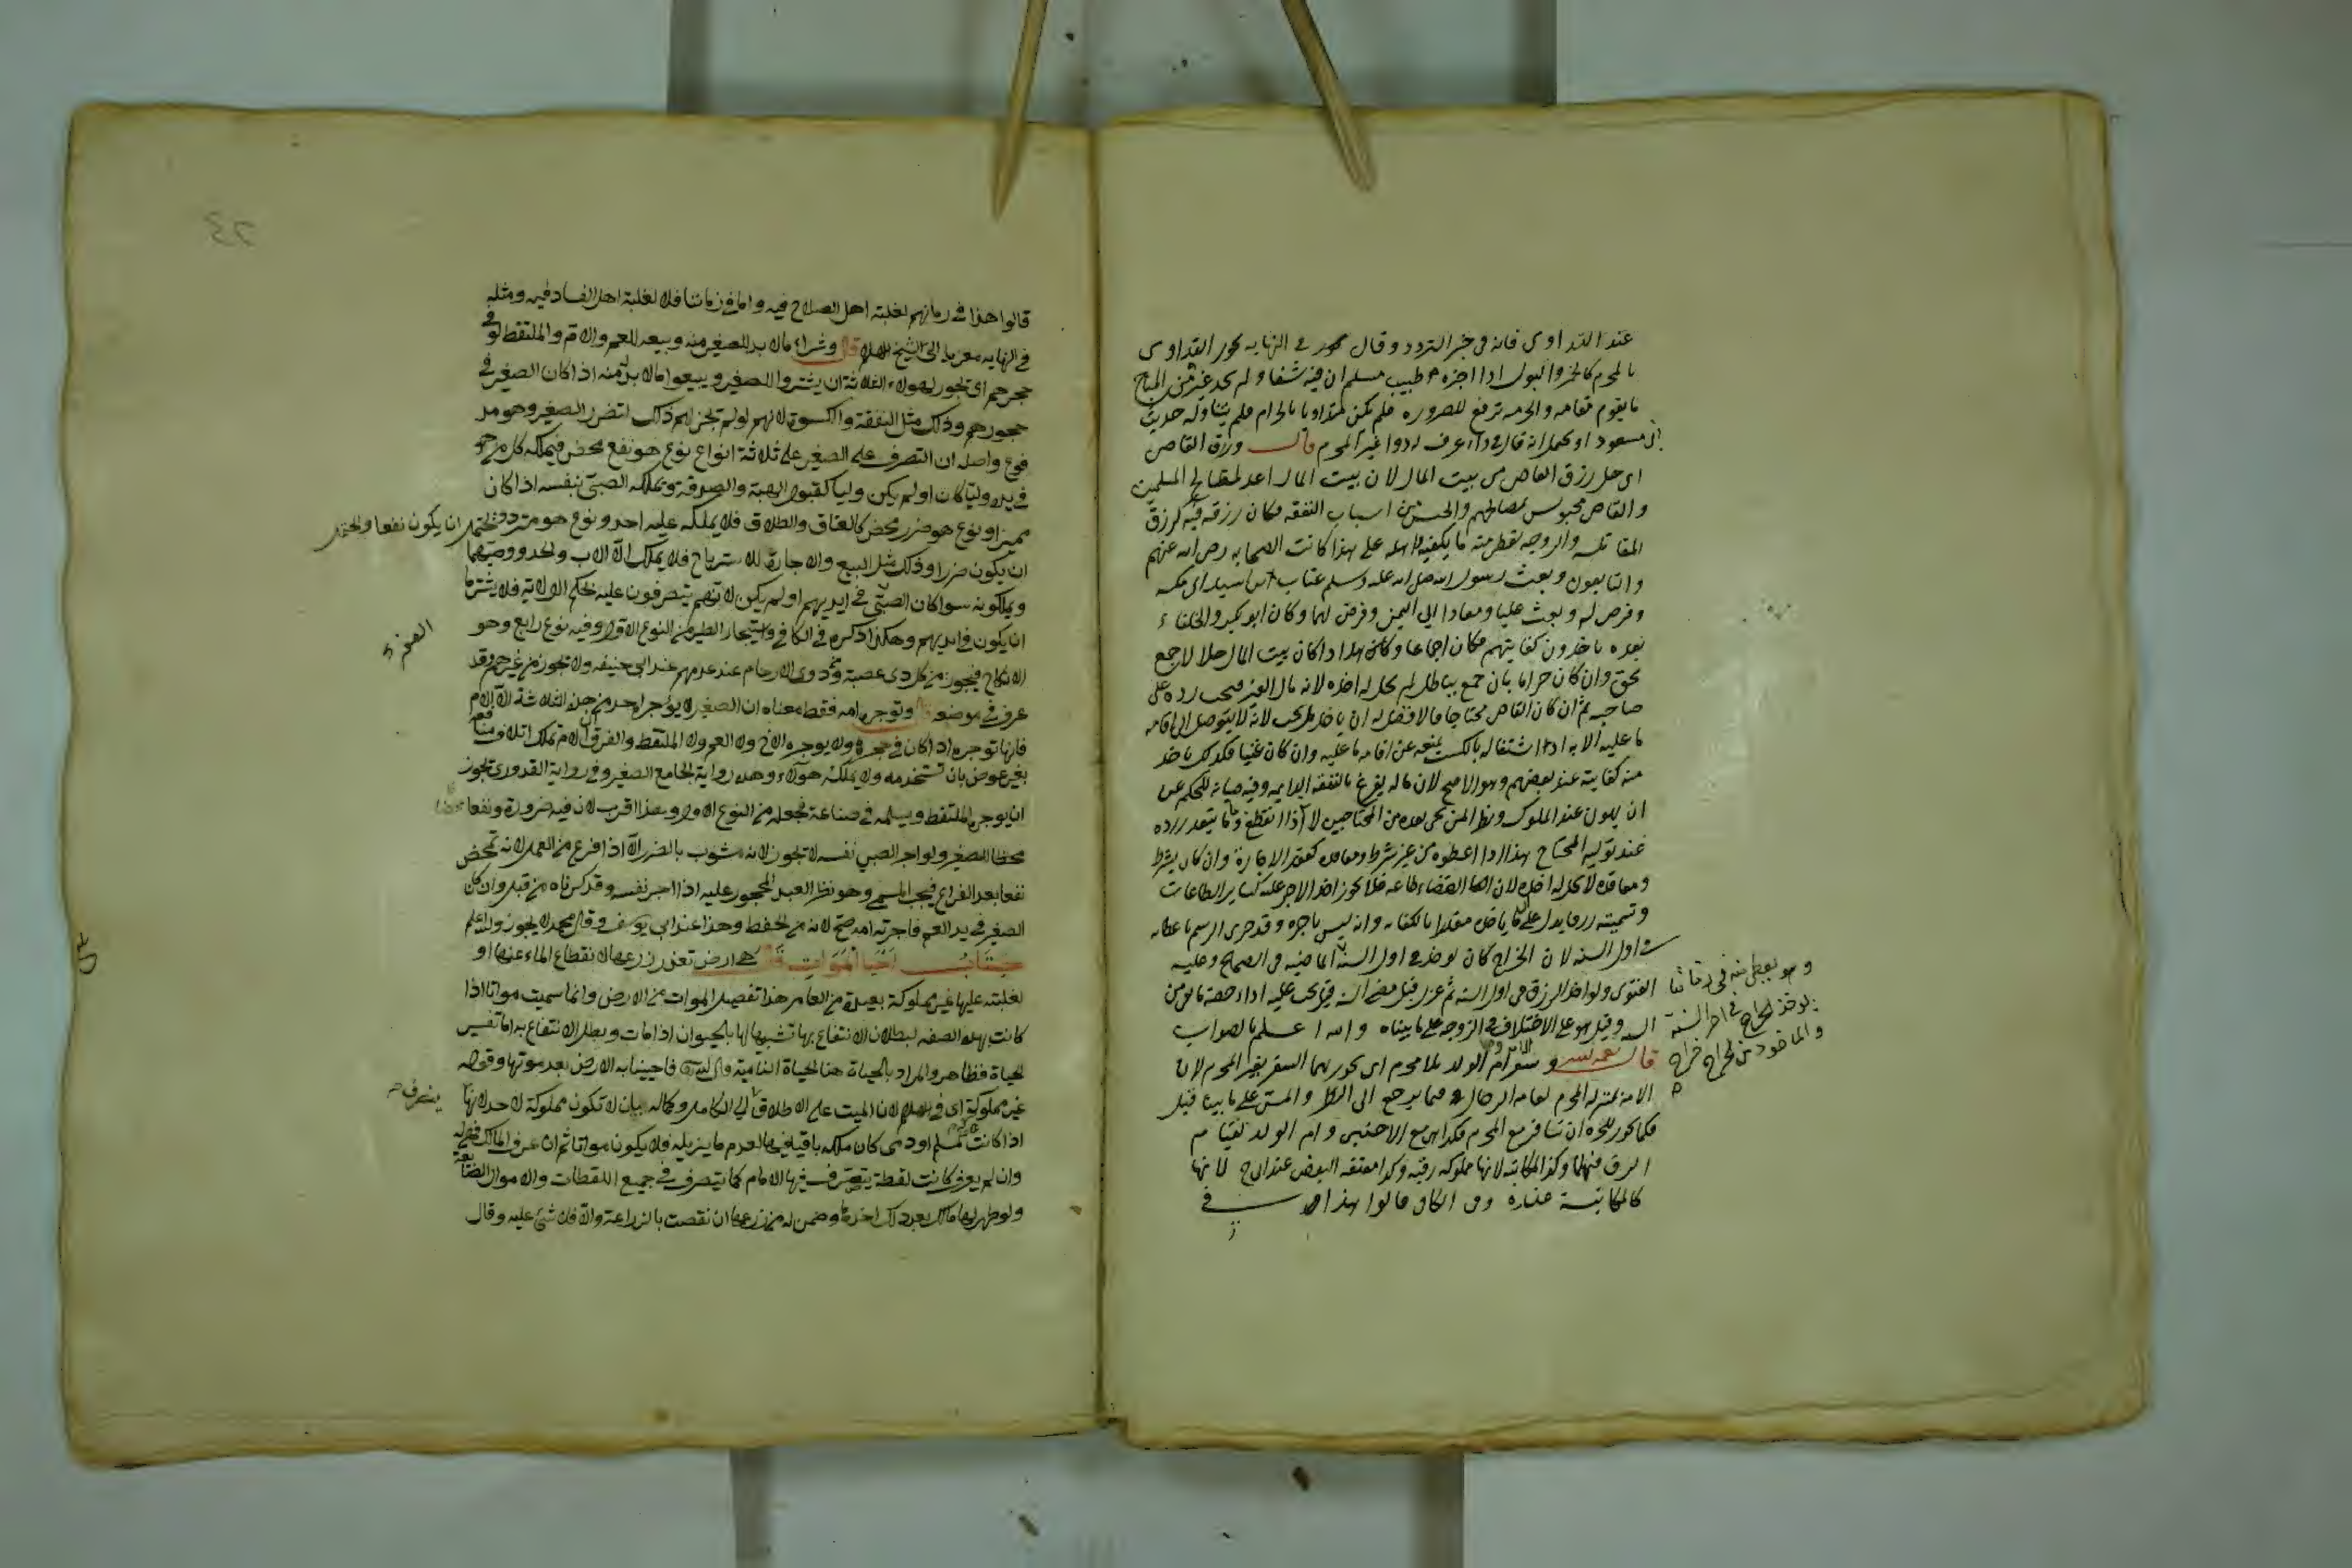 عند التداوى فانه فى خبر التردد وقال فى النهايه يجوز التداوى
بالمحرم كالخمر والبول اذا اخبره طبيب مسلم ان فيه شفا ولم يجد غيره من المباح
ما يقوم مقامه والحرمه ترفع للضروره فلم يكن متداويا بالحرام فلم يتناوله حديث
ابن مسعود او يحمل انه قال فى داء عرف له دوا غير المحرم قال ورزق القاضى
اى حل رزق القاضى من بيت المال لان بيت المال اعد لمصالح المسلمين
والقاضى محبوس لمصالحهم والحبس من اسباب النفقه فكان رزقه فيه كرزق
المقاتله والزوجه يعطى منه ما يكفيه واهله على هذا كانت الصحابه رضى الله عنهم
والتابعون وبعث رسول الله صلى الله عليه وسلم عتاب ابن اسيد الى مكه
وفرض له وبعث عليا ومعاذا الى اليمن وفرض لهما وكان ابو بكر والخلفاء
بعده ياخذون كفايتهم فكان اجماعا وكان هذا اذا كان بيت المال حلالا جمع
بحق وان كان حراما بان جمع بباطل لم يحل له اخذه لانه مال الغير فيجب رده على
صاحبه ثم ان كان القاضى محتاجا فالافضل له ان ياخذ بل يجب لانه لا يتوصل الى اقامه
ما عليه الا به اذ اشتغاله بالكسب يمنعه عن اقامه ما عليه وان كان غنيا فكذلك ياخذ
منه كفايته عند بعضهم وهو الاصح لان ماله يفرغ بالنفقه الدايمه وفيه صيانه للحكم عن
ان يهون عند الملوك ونظر لمن يجى بعده من المحتاجين لانه اذا انقطع زمانا يتعذر رده
عند توليه المحتاج هذا اذا اعطوه من غير شرط ومعاقده كعقد الاجارة وان كان بشرط
ومعاقده لا يحل له اخذه لان القضاء طاعه فلا يجوز اخذ الاجر عليه كساير الطاعات
وتسميته رزقا يدل على انه ياخذ مقدرا بالكفايه وانه ليس باجره وقد جرى الرسم باعطايه
فى اول السنه لان الخراج كان يوخذ فى اول السنه الماضيه فى الصحاح وعليه
الفتوى ولو اخذ الرزق فى اول السنه ثم عزل قبل مضى السنه قيل يجب عليه اداء حصة ما بقى من
السنه وقيل هو على الاختلاف فى الزوجه على ما بيناه والله اعلم بالصواب
قال رحمه الله وسفر الامة وام الولد بلا محرم اى يجوز لهما السفر بغير المحرم لان
الامة بمنزله المحرم لعامه الرجال فيما يرجع الى النظر والمس على ما بينا قبل
فكما يجوز للحره ان تسافر مع المحرم فكذا هى مع الاجنبى وام الولد لقيام
الرق فيها وكذا المكاتبه لانها مملوكه رقبه وكذا معتقه البعض عند ابى ح لانها
كالمكاتبة عنده وفى الكافى قالوا هذا فى
وهو يعطى منه فى زماننا
يوخذ الخراج فى اخر السنة
والماخوذ من الخراج خراج
قالوا هذا فى زمانهم لغلبة اهل الصلاح فيه واما فى زماننا فلا لغلبة اهل الفساد فيه ومثله
فى النهايه معزيا الى شيخ الاسلام قال وشراء ما لا بد للصغير منه وبيعه للعم والام والملتقط لو فى
حجرهم اى يجوز لهولاء الثلاثة ان يشتروا للصغير ويبيعوا ما لا بد له منه اذا كان الصغير فى
حجورهم وذلك مثل النفقة والكسوة لانهم لو لم يجز لهم ذلك لتضرر الصغير وهو مد
فوع واصله ان التصرف على الصغير على ثلاثة انواع نوع هو نفع محض فيملكه كل من هو
فى يده وليا كان او لم يكن وليا كقبول الهبة والصدقة ويملكه الصبى بنفسه اذا كان
مميزا ونوع هو ضرر محض كالعتاق والطلاق فلا يملكه عليه احد ونوع هو متردد يحتمل ان يكون نفعا ويحتمل
ان يكون ضررا وذلك مثل البيع والاجارة للاسترباح فلا يملك الا الاب والجد ووصيهما
ويملكونه سوا كان الصبى فى ايديهم او لم يكن لانهم يتصرفون عليه بحكم الولاية فلا يشترط
ان يكون فى ايديهم وهكذا ذكره فى الكافى واستيجار الظير من النوع الاول وفيه نوع رابع وهو
الانكاح فيجوز من كل ذى عصبة ومن ذوى الارحام عند عدمهم عند ابى حنيفه ولا يجوز من غيرهم وقد
عرف فى موضعه قال وتوجره امه فقط معناه ان الصغير لا يوجره احد من هذه الثلاثة الا الام
فانها توجره اذا كان فى حجرها ولا يوجره الاخ ولا العم ولا الملتقط والفرق ان الام تملك اتلاف منافعه
بغير عوض بان تستخدمه ولا يملكه هولاء وهذه رواية الجامع الصغير وفى رواية القدورى يجوز
ان يوجره الملتقط ويسلمه فى صناعة فجعله من النوع الاول وهذا اقرب لان فيه ضرورة ونفعا محضا
محضا للصغير ولو اجر الصبى نفسه لا يجوز لانه مشوب بالضرر الا اذا فرغ من العمل لانه تمحض
نفعا بعد الفراغ فيجب المسمى وهو نظير العبد المحجور عليه اذا اجر نفسه وقد ذكرناه من قبل وان كان
الصغير فى يد العم فاجرته امه صح لانه من الحفظ وهذا عند ابى يوسف وقال محمد لا يجوز والله اعلم
كتاب احيا الموات قال هى ارض تعذر زرعها لانقطاع الماء عنها او
لغلبته عليها غير مملوكة بعيدة من العامر هذا تفصيل الموات من الارض وانما سميت مواتا اذا
كانت بهذه الصفه لبطلان الانتفاع بها تشبيها لها بالحيوان اذا مات وبطل الانتفاع به اما تفسير
الحياة فظاهر والمراد بالحياة هنا الحياة النامية قال الله تعالى فاحيينا به الارض بعد موتها وقوله
غير مملوكة اى فى الاسلام لان الميت على الاطلاق ينصرف الى الكامل وكماله بان لا تكون مملوكة لاحد لانها
اذا كانت لمسلم او ذمى كان ملكه باقيا فيها لعدم ما يزيله فلا يكون مواتا ثم ان عرف المالك فهى له
وان لم يعرف كانت لقطة يتصرف فيها الامام كما يتصرف فى جميع اللقطات والاموال الضائعة
ولو ظهر لها مالك بعد ذلك اخذها وضمن له من زرعها ان نقصت بالزراعة والا فلا شئ عليه وقال